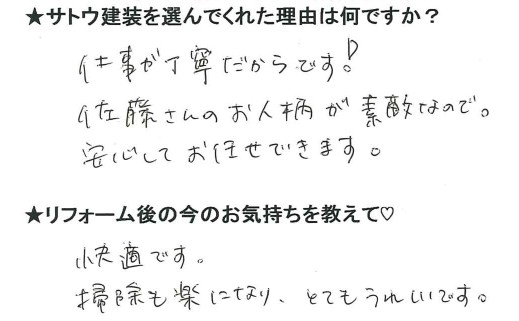 ★サトウ建装を選んでくれた理由は何ですか？
仕事が丁寧だからです！
佐藤さんのお人柄が素敵なので。
安心してお任せできます。
★リフォーム後の今のお気持ちを教えて♡
快適です。
掃除も楽になり、とてもうれしいです。